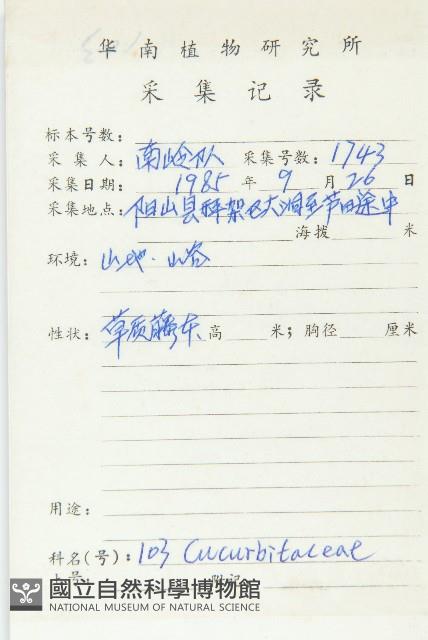 华南植物研究所
采集记录
标本号数：
采集人：南岭队 采集号数：1743
采集日期：1985年9月26日
采集地点：阳山县秤架区大洞至芦田途中
海拨 米
环境：山地．山谷
性状：草质藤本 高 米；胸径 厘米
用途：
科名(号)：103 Cucurbitaceae
附记
國立自然科學博物館
NATIONAL MUSEUM OF NATURAL SCIENCE